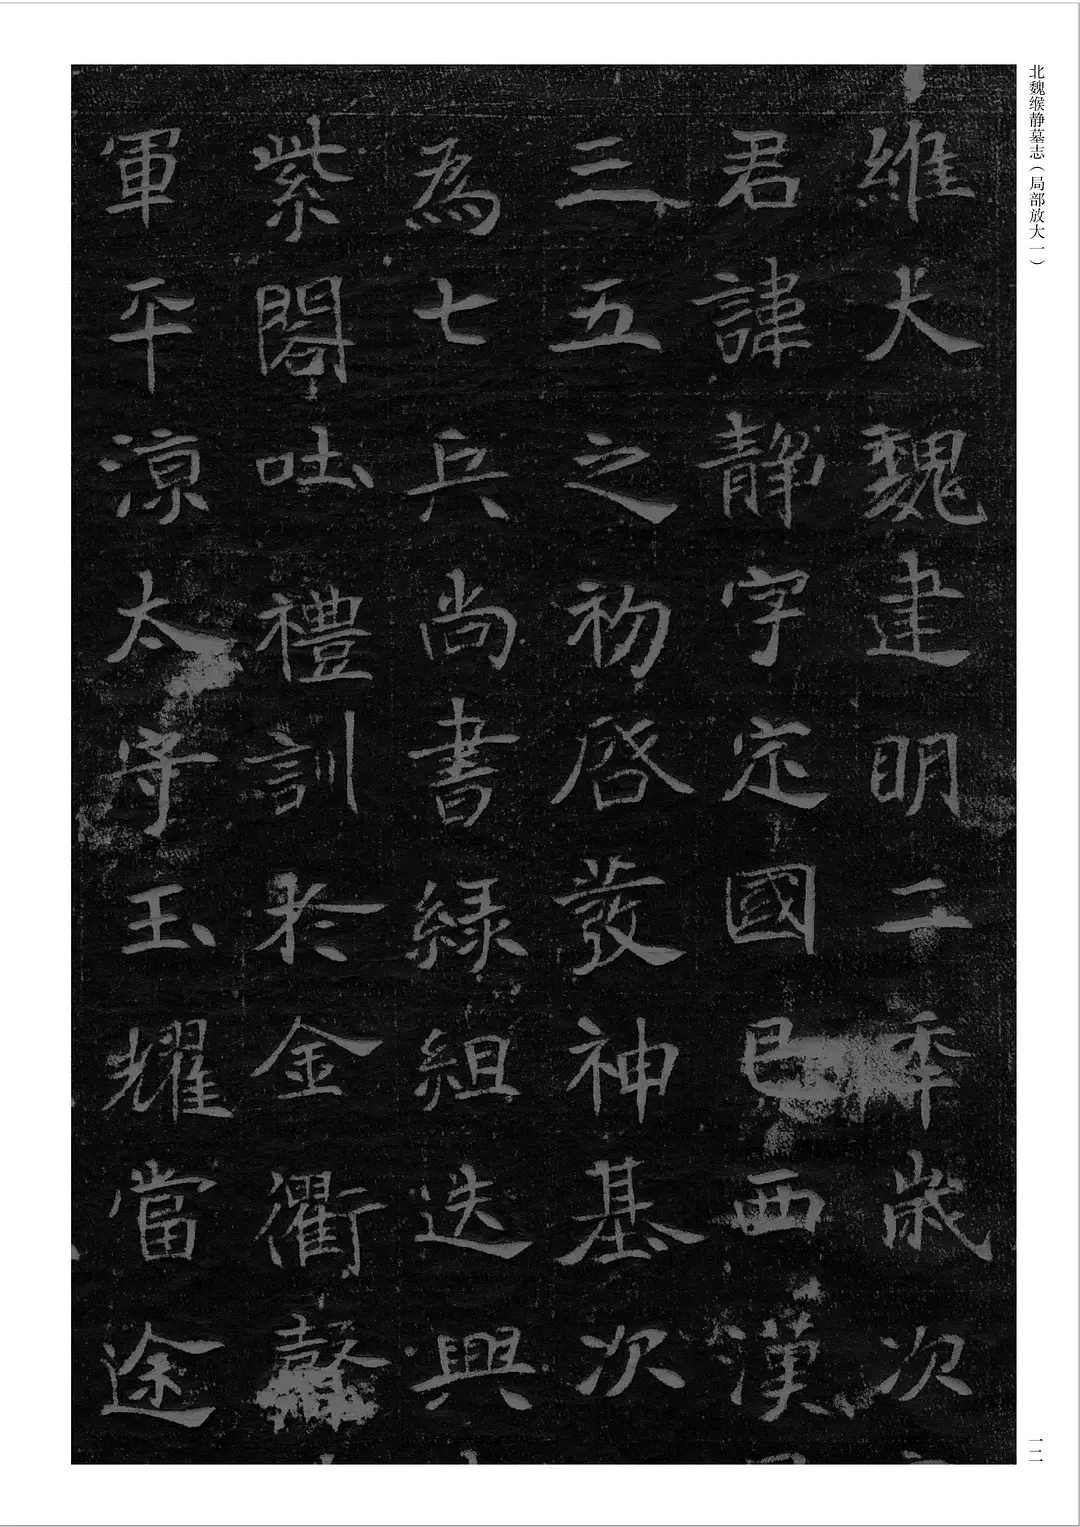 北魏缑静墓志（局部放大一）
維大魏建明二年歲次
君諱靜字定國巴西漢
三五之初啓發神基次
為七兵尚書緑組迭興
紫閣吐禮訓於金衢聲
軍平涼太守玉耀當途
一二